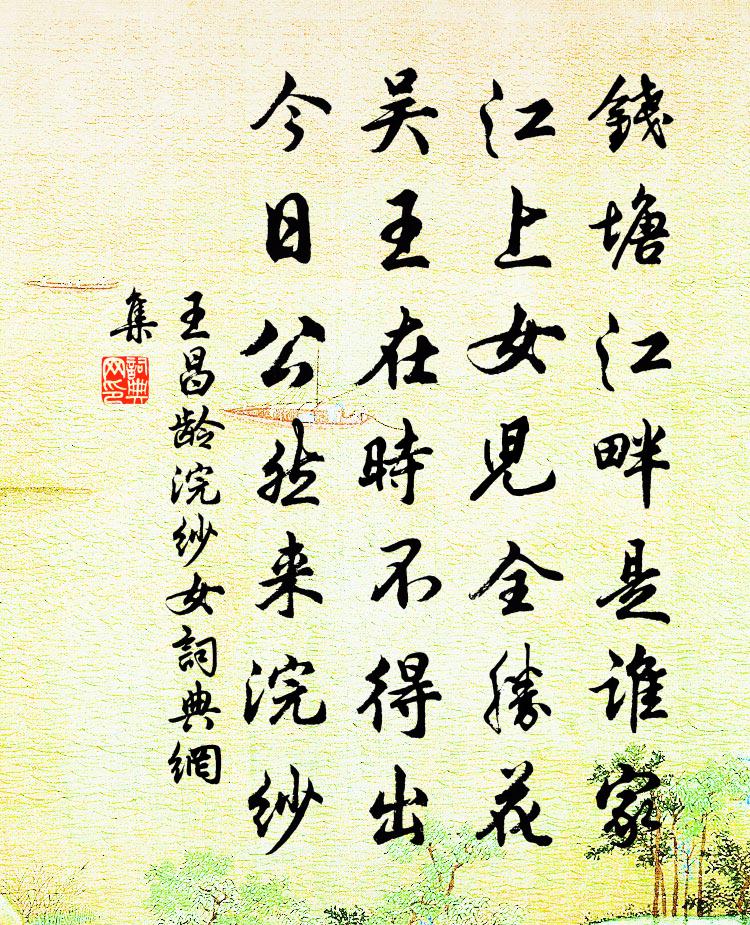 錢塘江畔是谁家
江上女児全勝花
吴王在時不得出
今日公然来浣紗
王昌龄浣紗女詞典網
集
詞典
网印